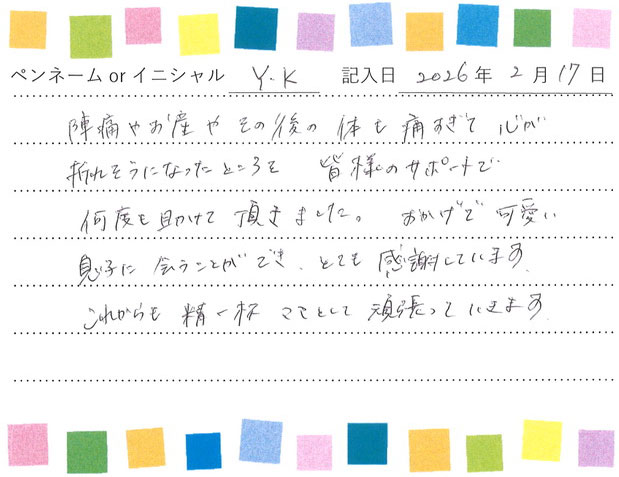 ペンネーム or イニシャル Y.K 記入日 2026年 2月 17日
陣痛やお産やその後の体も痛すぎて心が
折れそうになったところを 皆様のサポートで
何度も助けて頂きました。おかげで可愛い
息子に会うことができ、とても感謝しています。
これからも精一杯ママとして頑張っていきます。